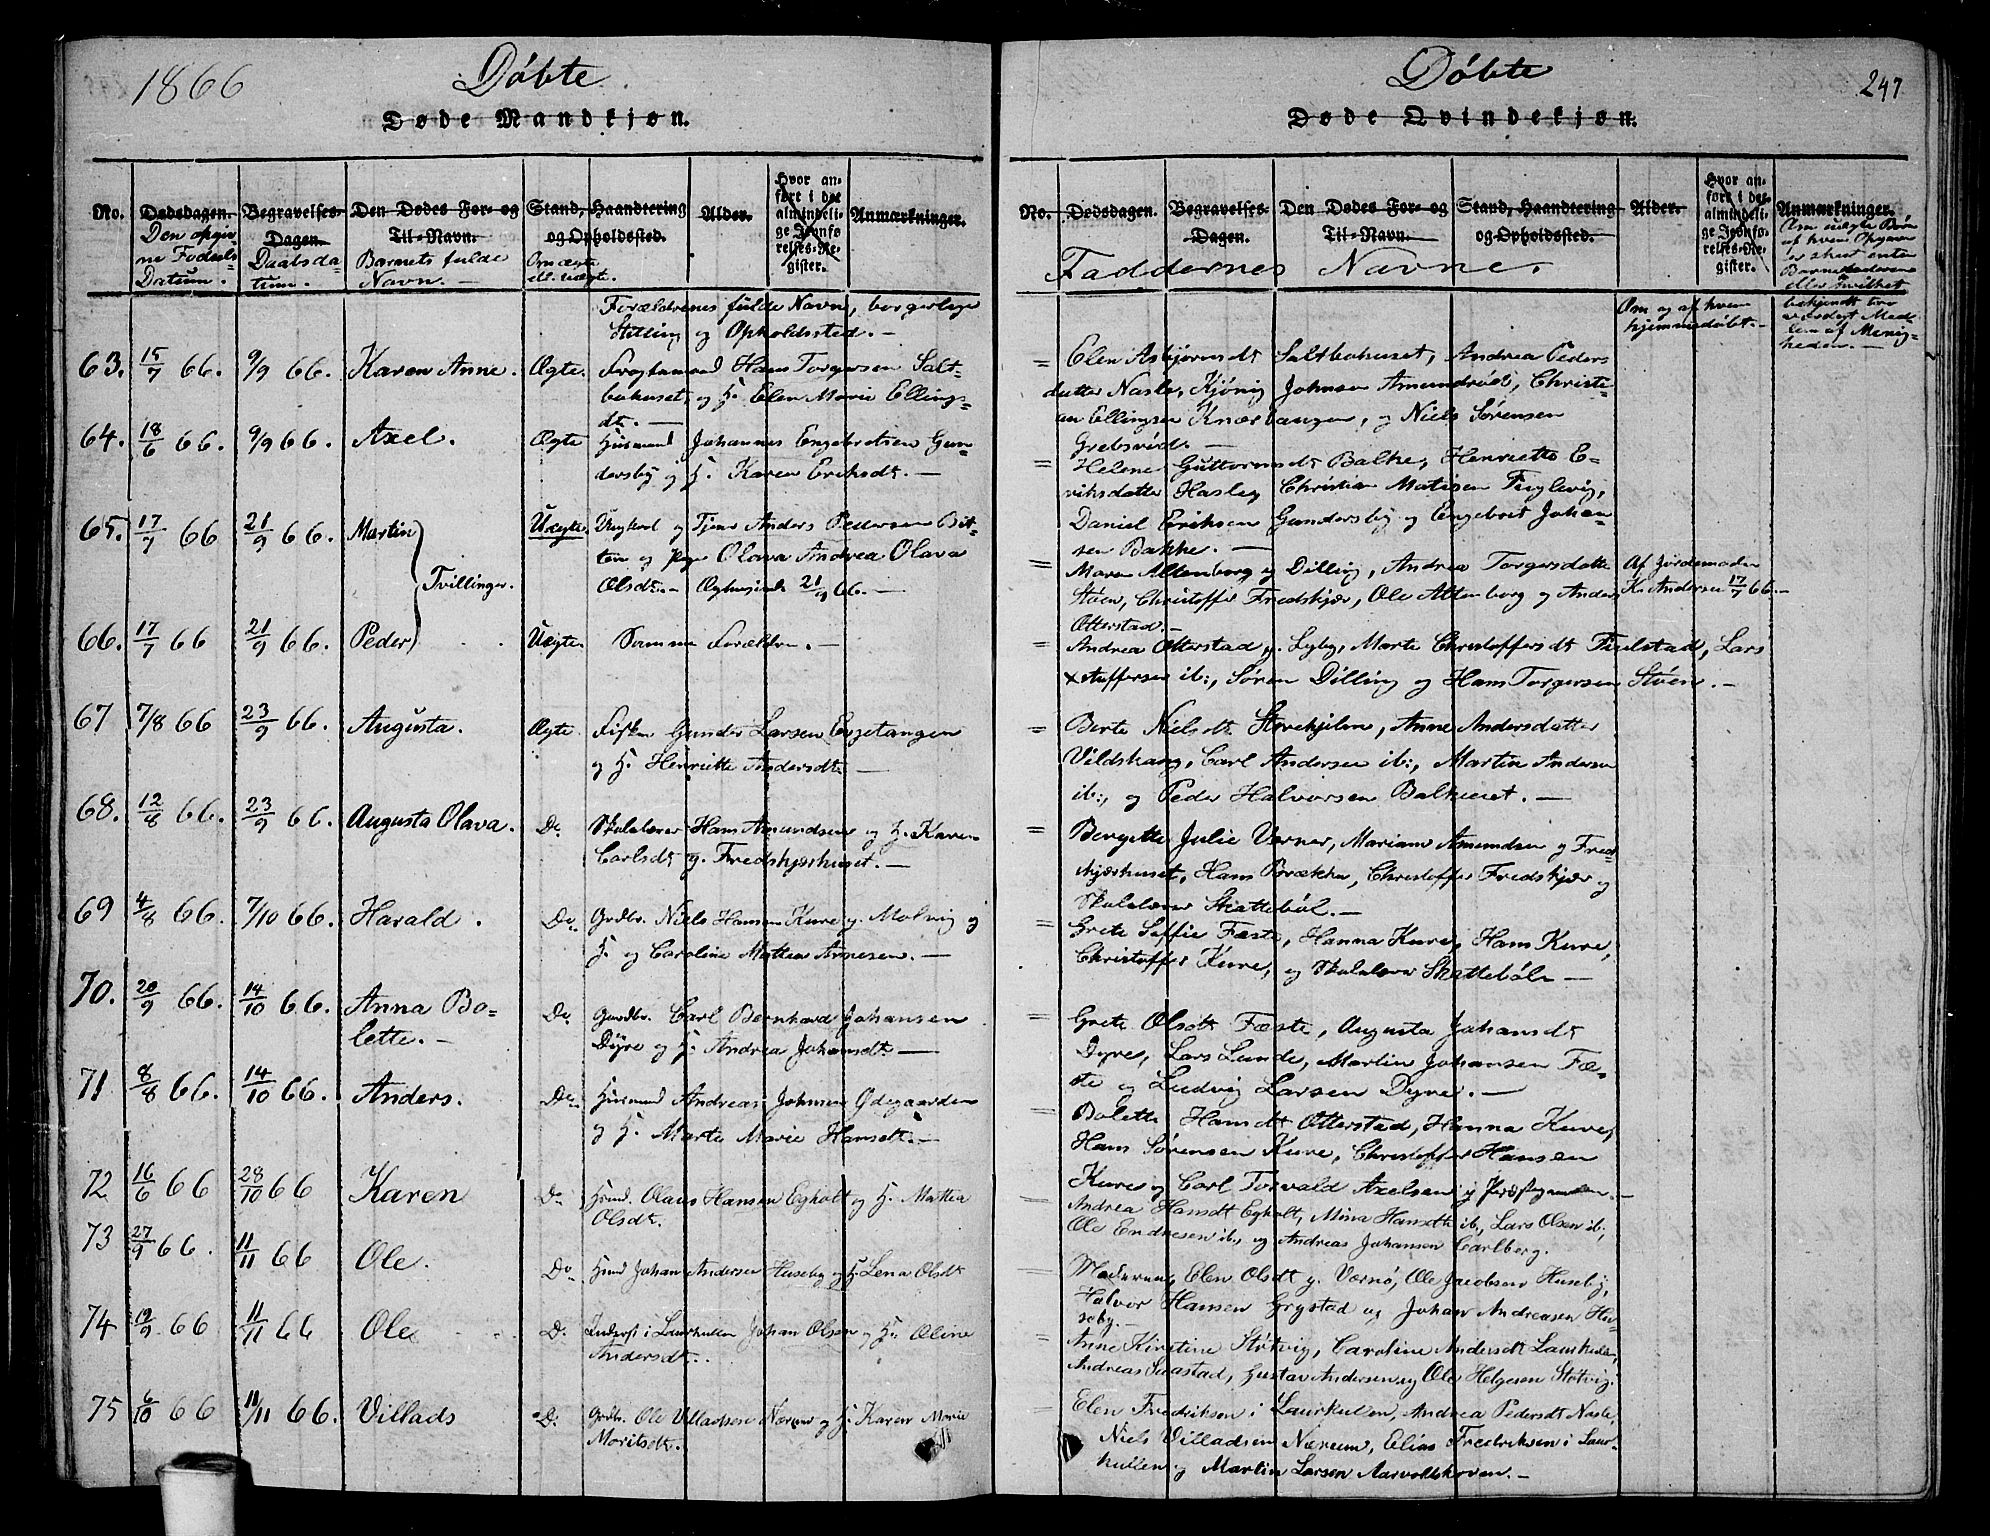 1866
Døbte
Døde Mandkjøn.
No. Dødsdagen. Begravelses- Dagen. Den Dødes For- og Til-Navn. Stand, Haandtering og Opholdssted. Alder. Hvor anført i det almindelige Jevnførelses-Register. Anmærkninger.
Den opgivne Fødsels Datum. Daabsdatum. Barnets fulde Navn. — Om ægte ell. uægte.
Forældrenes fulde Navn, borgerlige
Stilling og Opholdssted. —
63. 15/7 66. 9/9 66. Karen Anne. Ægte. Hans Torgersen Salt-
bohuset, og H. Elen Marie Ellings-
dt. —
64. 18/6 66. 9/9 66. Axel. Ægte Husmand Johannes Engebretsen Gun-
dersby og H. Karen Eriksdt. —
65. 17/7 66 21/9 66. Martin Uægte. Ungkarl og Tjener Anders Pedersen
og Pige Olava Andrea Olava
Tvillinger. Olsdt. — 21/9 66. —
66. 17/7 66 21/9 66. Peder Uægte. Samme Forældre. —
67 7/8 66 23/9 66. Augusta. Ægte. Fisker Gunder Larsen Ergetangen
og H. Henriette Andersdt. —
68. 12/8 66. 23/9 66. Augusta Olava. Do. Skolelærer Hans Amundsen og H. Karen
Carlsdt. g. Fredskjærhuset. —
69 4/8 66. 7/10 66. Harald. Do. Grdbr. Niels Hansen Kure g. Molvig og
H. og Caroline Mathea Arnesen. —
70. 20/9 66. 14/10 66. Anna Bo-
lette. — Do. Gaardbr. Carl Bernhard Johansen
Dyre og H. Andrea Johansdt. —
71 8/8 66. 14/10 66. Anders. Do. Husmand Andreas Johnsen Ødegaarden
og H. Marte Marie Hansdt. —
72 16/6 66 28/10 66 Karen Do. Hsmd. Olaus Hansen Egholt og H. Mathea
Olsdt.
73 27/9 66. 11/11 66 Ole. Do. Hsmd Johan Andersen Huseby og H. Lena Olsdt
74 19/9 66 11/11 66 Ole. Do. Inderst i Laurkullen Johan Olsen og H. Oline
Andersdt.
75 6/10 66 11/11 66. Villads Do. Grdbr. Ole Villadsen Nærum og H. Karen Marie
Moritsdt.
Døbte
247
Døde Qvindekjøn.
No. Dødsdagen. Begravelses- Dagen. Den Dødes For- og Til-Navn. Stand, Haandtering og Opholdssted. Alder. Hvor anført i det almindelige Jevnførelses-Register. Anmærkninger.
Faddernes Navne.
Om og af hvem
hjemmedøbt. —
Om uægte Børn
af hvem Opgaven
er skeet enten
Barnefaderen
eller hvilket
bekjendt tro-
værdigt Med-
lem af Menig-
heden. —
= Elen Asbjørnsdt Saltbohuset, Andrea Peders
datter Nasle, Kjønig Johnsen Amundrød, Christi-
an Ellingsen Knærbangen, og Niels Sørensen
Grebsvird. —
= Helene Guttormsdt Balke, Henriette E-
riksdatter Hasley Christian Matisen Fuglevig,
Daniel Eriksen Gundersby og Engebret Johan-
sen Bakke. —
= Maren Altenborg g Dilling, Andrea Torgersdatter Af Jordemoder
Støen, Christoffer Fredskjær, Ole Altenborg og Anders K. Andersen 17/7 66. —
Otterstad. —
= Andrea Otterstad g. Lyby, Marte Christoffersdt Fuelstad, Lars
Xstoffersen ib:, Søren Dilling og Hans Torgersen Støen. —
= Berte Nielsdt Storekjilen, Anne Andersdatter
Vildskang, Carl Andersen ib:, Martin Andersen
ib:, og Peder Halvorsen Balkeeiet. —
= Bergette Julie Verner, Mariam Amundsen og Freds-
kjærhuset, Hans Brække, Christoffer Fredskjær og
Skolelærer Skattebøl. —
= Grete Soffie Fæste, Hanna Kure, Hans Kure,
Christoffer Kure, og Skolelærer Skattebøl. —
= Grete Olsdt Fæste, Augusta Johansdt
Dyre, Lars Lunde, Martin Johansen Fæ-
ste og Ludvig Larsen Dyre. —
= Bolette Hansdt Otterstad, Hanna Kure,
Hans Sørensen Kure, Christoffer Hansen
Kure og Carl Torvald Axelsen g Præstegaarden. —
= Andrea Hansdt Egholt, Mina Hansdt ib:, Lars Olsen ib:,
Ole Endresen ib:, og Andreas Johansen Carlberg.
= Moderen, Elen Olsdt g. Værnø, Ole Jacobsen Huseby,
Halvor Hansen Grystad og Johan Andreasen Hu-
seby. —
= Anne Kirstine Støtvig, Caroline Andersdt Laurkulen,
Andreas Saastad, Gustav Andersen og Ole Helgesen Støtvig.
= Elen Fredriksen i Laurkulen, Andrea Pedersdt Nasle,
Niels Villadsen Nærum, Elias Fredriksen i Laur-
kullen og Martin Larsen Aarvoldskoven. —